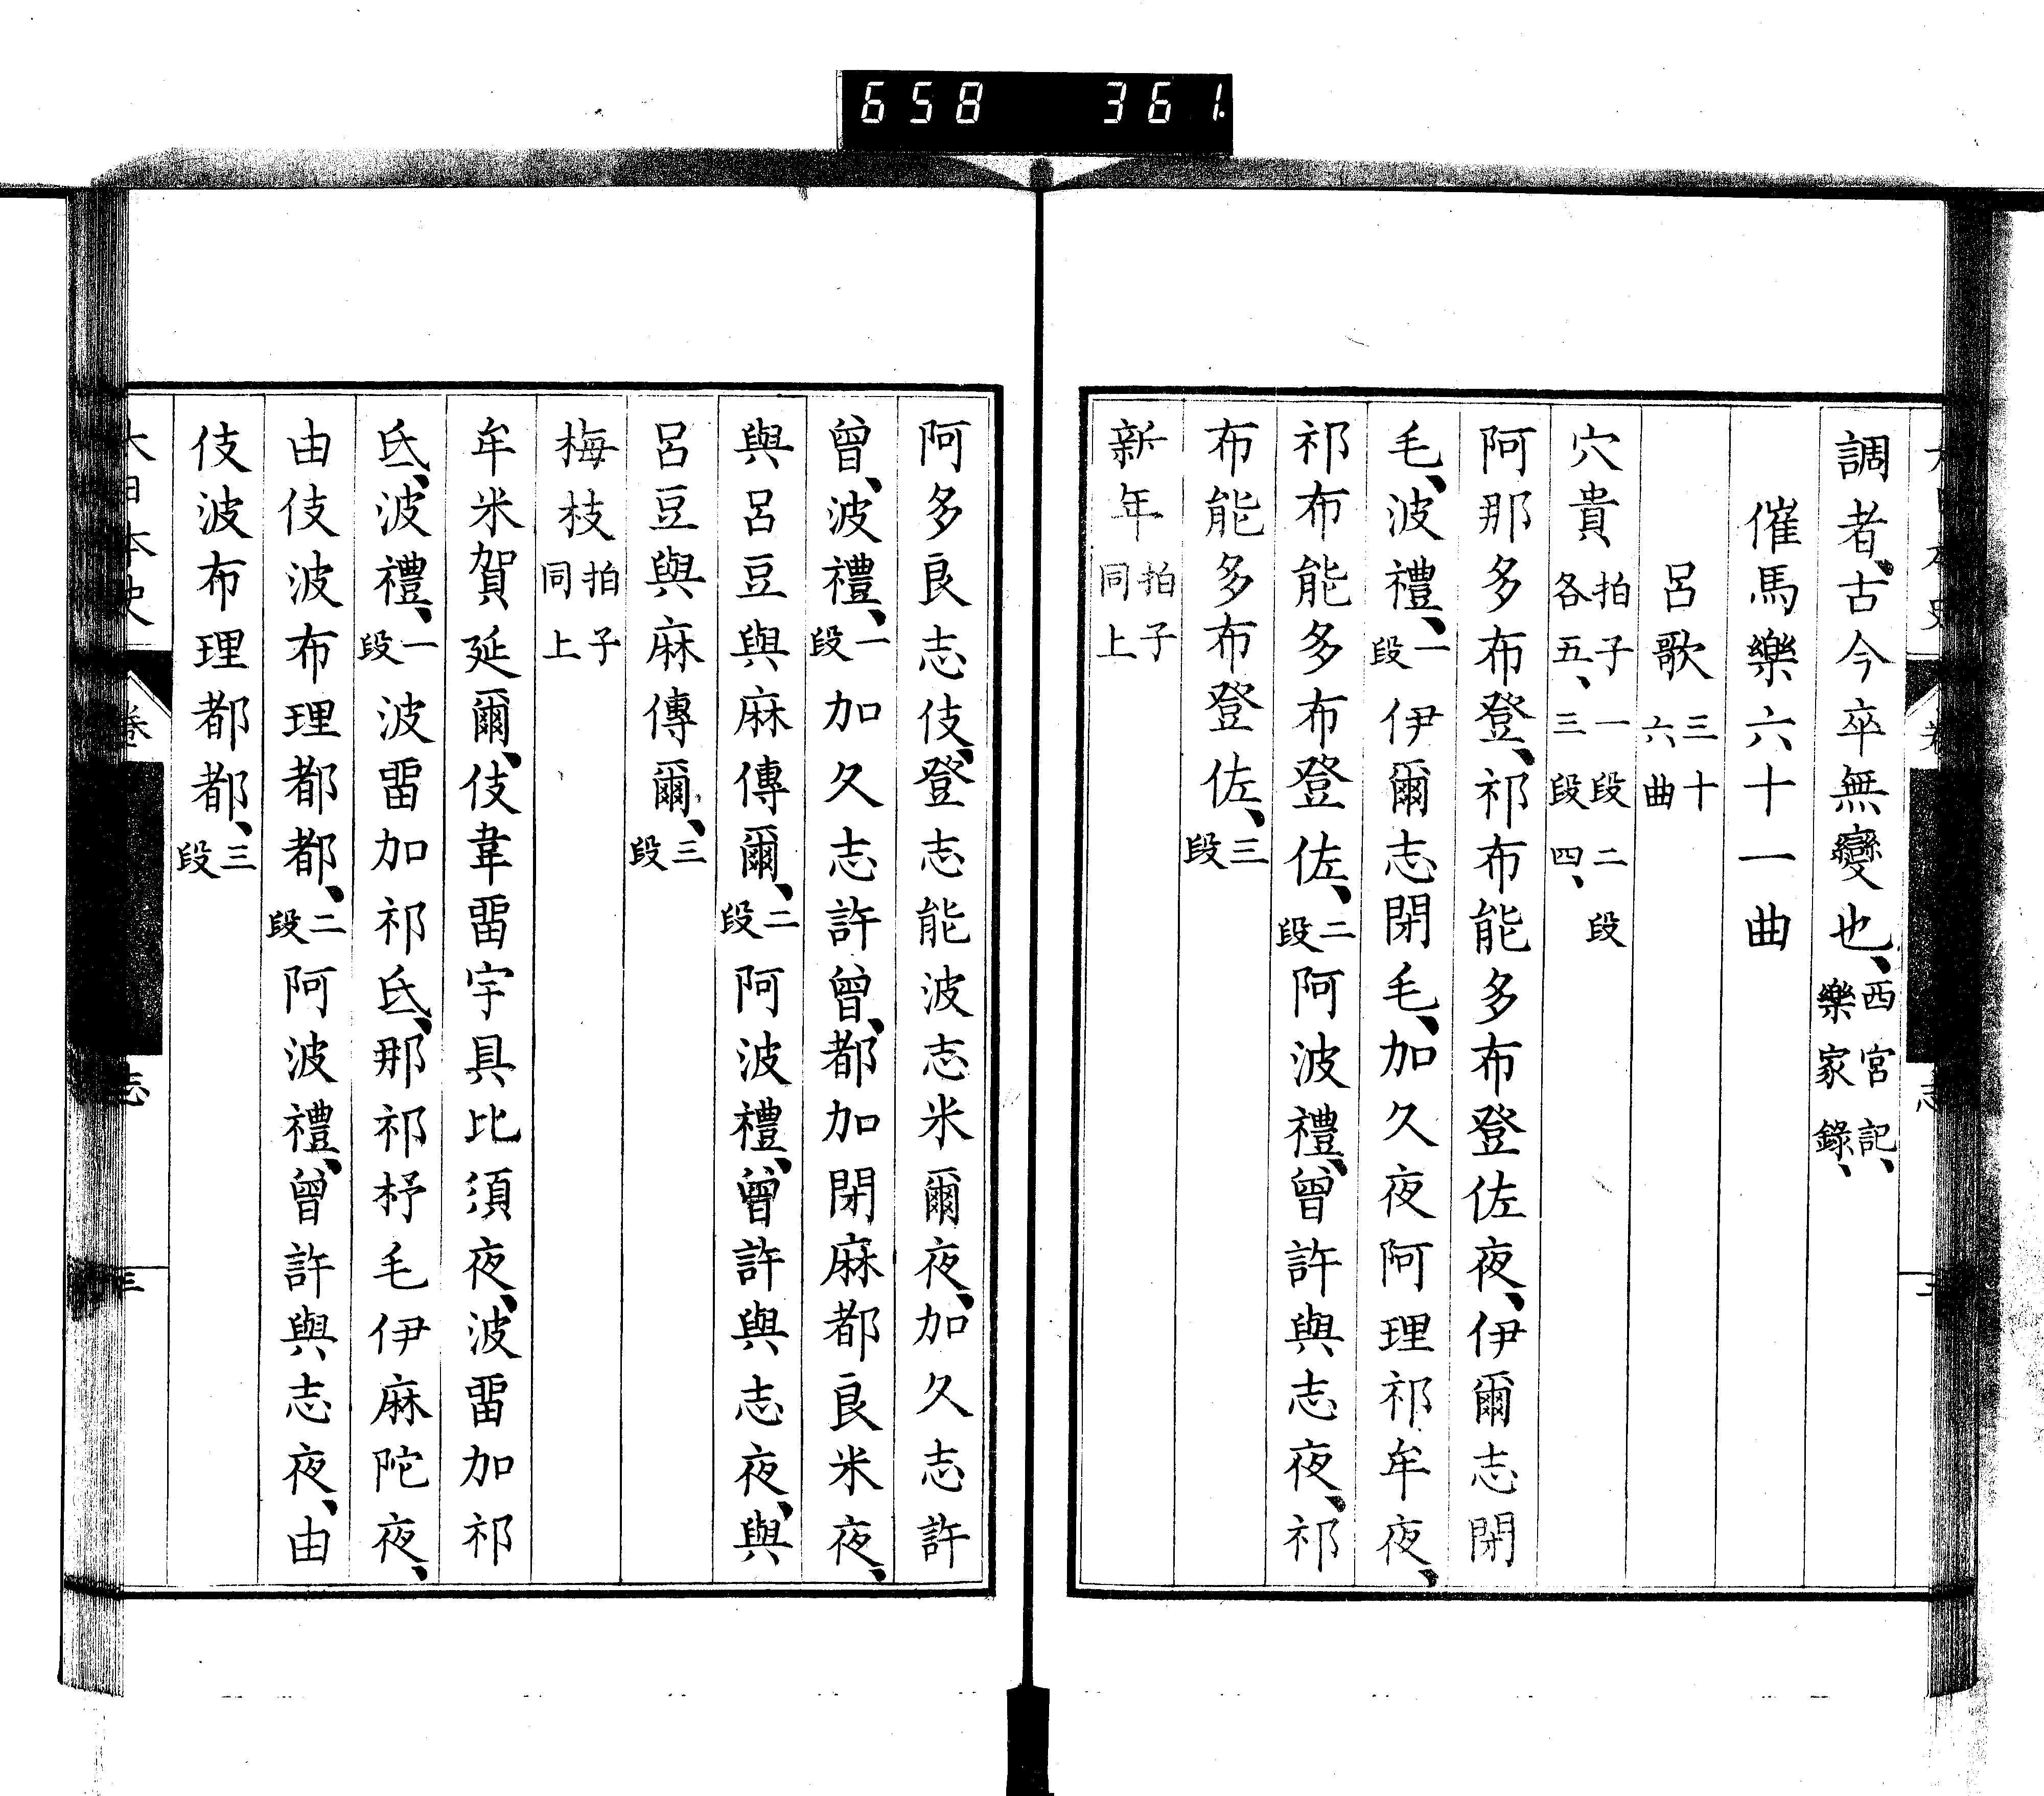 658 361
調者、古今卒無變也、西宮記、樂家錄、
催馬樂六十一曲
呂歌三十六曲
穴貴拍子一段二段各五、三段四、
阿那多布登、祁布能多布登佐夜、伊爾志閇
毛、波禮、一段伊爾志閇毛、加久夜阿理祁牟夜、
祁布能多布登佐、二段阿波禮、曾許與志夜、祁
布能多布登佐、三段
新年拍子同上
阿多良志伎、登志能波志米爾夜、加久志許
曾、波禮、一段加久志許曾、都加閇麻都良米夜、
與呂豆與麻傳爾、二段阿波禮、曾許與志夜、與
呂豆與麻傳爾、三段
梅枝拍子同上
牟米賀延爾、伎韋畱宇具比須夜、波畱加祁
氐、波禮、一段波畱加祁氐、那祁杼毛伊麻陀夜、
由伎波布理都都、二段阿波禮、曾許與志夜、由
伎波布理都都、三段
大日本史 卷 志 三